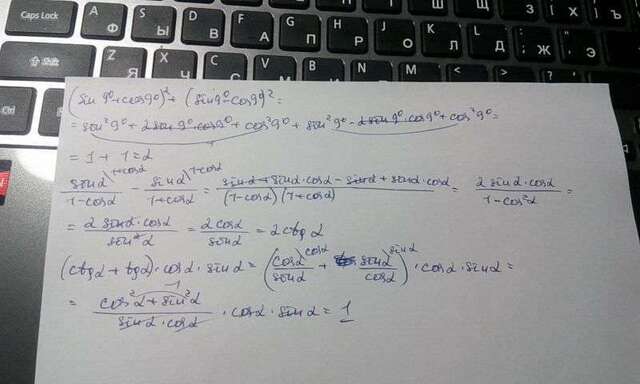 Caps Lock A Ф S Ы D В F А G П H Р J О K Л L Д ; Ж Э
Shift Z Я X Ч
(sin 9° + cos 9°)² + (sin 9° - cos 9°)² =
= sin² 9° + 2 sin 9° · cos 9° + cos² 9° + sin² 9° - 2 sin 9° · cos 9° + cos² 9° =
= 1 + 1 = 2
sin α \ 1+cosα / 1 - cos α - sin α \ 1-cosα / 1 + cos α = sin α + sin α · cos α - sin α + sin α · cos α / (1 - cos α)(1 + cos α) = 2 sin α · cos α / 1 - cos² α =
= 2 sin α · cos α / sin² α = 2 cos α / sin α = 2 ctg α
(ctg α + tg α) · cos α · sin α = (cos α \ cos α / sin α + sin α \ sin α / cos α) · cos α · sin α =
= cos² α + sin² α 1 / sin α · cos α · cos α · sin α = 1